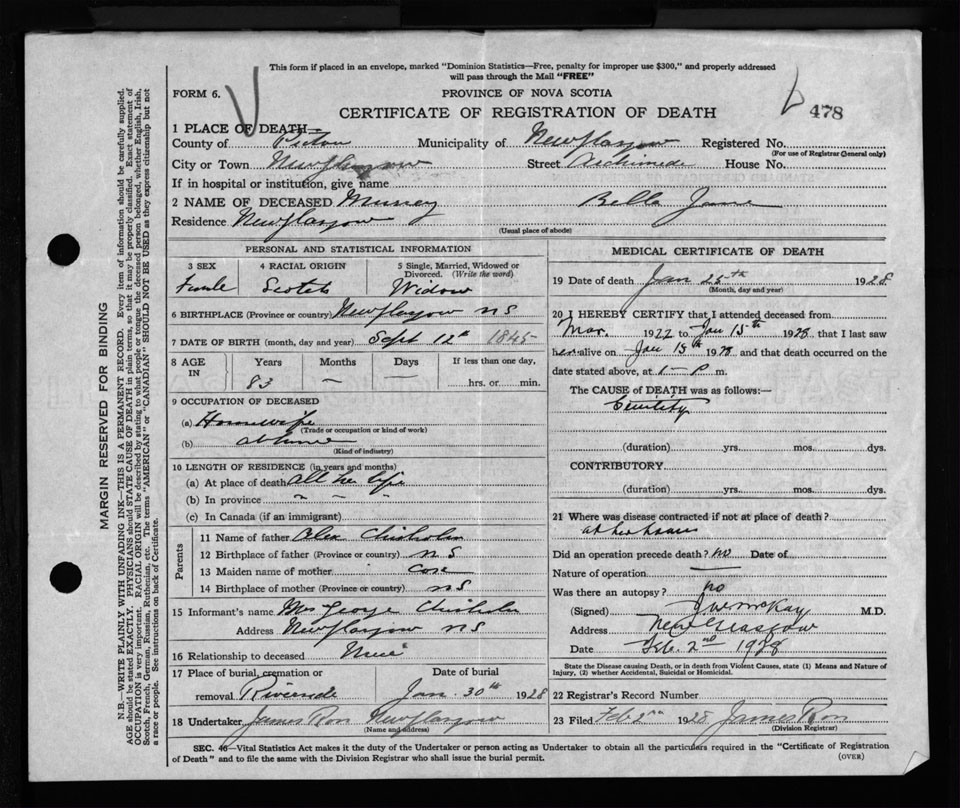 This form if placed in an envelope, marked "Dominion Statistics—Free, penalty for improper use $300," and properly addressed
will pass through the Mail "FREE"
FORM 6.
PROVINCE OF NOVA SCOTIA
CERTIFICATE OF REGISTRATION OF DEATH
478
1 PLACE OF DEATH—
County of Pictou Municipality of New Glasgow Registered No.
(For use of Registrar General only)
City or Town New Glasgow Street Archimede House No.
If in hospital or institution, give name
2 NAME OF DECEASED Murray Bella Jane
Residence New Glasgow
(Usual place of abode)
PERSONAL AND STATISTICAL INFORMATION
3 SEX
4 RACIAL ORIGIN
5 Single, Married, Widowed or Divorced. (Write the word)
Female
Scotch
Widow
6 BIRTHPLACE (Province or country) New Glasgow N S
7 DATE OF BIRTH (month, day and year) Sept 12th 1845
8 AGE IN
Years
Months
Days
If less than one day,
83 — —
hrs. or min.
9 OCCUPATION OF DECEASED
(a) Housewife
(Trade or occupation or kind of work)
(b) at home
(Kind of industry)
10 LENGTH OF RESIDENCE (in years and months)
(a) At place of death all her life
(b) In province " " "
(c) In Canada (if an immigrant)
Parents
11 Name of father Alex Chisholm
12 Birthplace of father (Province or country) N S
13 Maiden name of mother
14 Birthplace of mother (Province or country) N S
15 Informant's name Mrs George Chisholm
Address New Glasgow N S
16 Relationship to deceased Niece
17 Place of burial, cremation or removal Riverside
Date of burial
Jan. 30th 1928
18 Undertaker James Ross New Glasgow
(Name and address)
MEDICAL CERTIFICATE OF DEATH
19 Date of death Jan 28th 1928
(Month, day and year)
20 I HEREBY CERTIFY that I attended deceased from
Mar. 1922 to Jan 15th 1928, that I last saw
her alive on Jan 15th 1928 and that death occurred on the
date stated above, at 1—P m.
The CAUSE OF DEATH was as follows:—
(duration) yrs. mos. dys.
CONTRIBUTORY
(duration) yrs. mos. dys.
21 Where was disease contracted if not at place of death?
at her home
Did an operation precede death? no Date of
Nature of operation —
Was there an autopsy? no
(Signed) J W McKay M.D.
Address New Glasgow
Date Feb. 2nd 1928
State the Disease causing Death, or in death from Violent Causes, state (1) Means and Nature of
Injury, (2) whether Accidental, Suicidal or Homicidal.
22 Registrar's Record Number
23 Filed Feb 2nd 1928 James Ross
(Division Registrar)
SEC. 46—Vital Statistics Act makes it the duty of the Undertaker or person acting as Undertaker to obtain all the particulars required in the "Certificate of Registration
of Death" and to file the same with the Division Registrar who shall issue the burial permit.
(OVER)
MARGIN RESERVED FOR BINDING
N.B.—WRITE PLAINLY WITH UNFADING INK—THIS IS A PERMANENT RECORD. Every item of information should be carefully supplied.
AGE should be stated EXACTLY. PHYSICIANS should STATE CAUSE OF DEATH in plain terms, so that it may be properly classified. Exact statement of
OCCUPATION is very important. RACIAL ORIGIN will be described by stating to what people or tongue the deceased person belonged, whether English, Irish,
Scotch, French, German, Russian, Ruthenian, etc. The terms "AMERICAN" or "CANADIAN" SHOULD NOT BE USED as they express citizenship but not
a race or people. See instructions on back of Certificate.